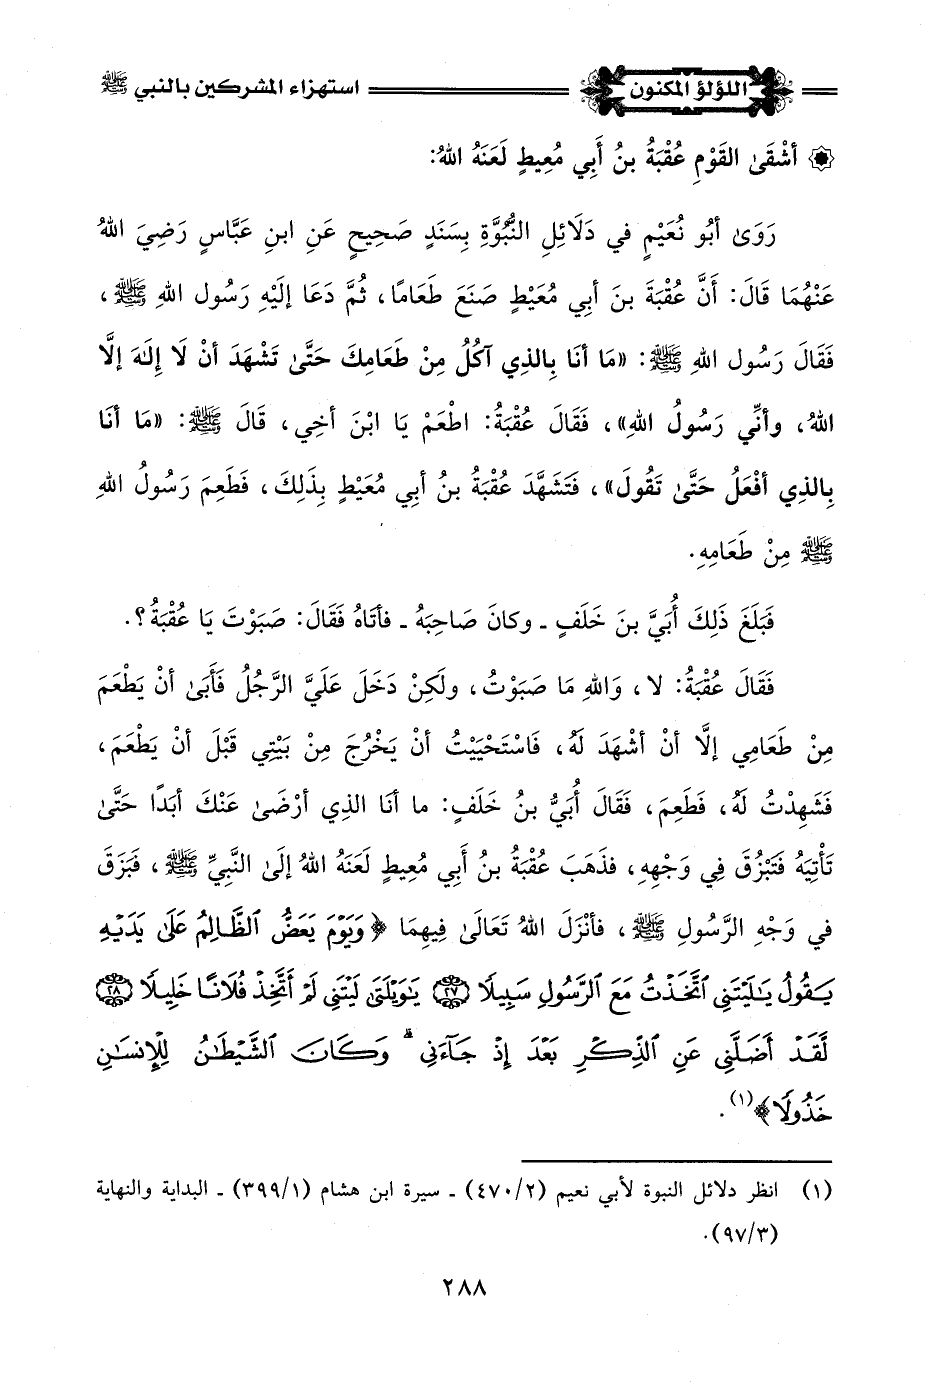 اللؤلؤ المكنون استهزاء المشركين بالنبي ﷺ
أشْقَىٰ القَوْمِ عُقْبَةُ بنُ أَبِي مُعِيطٍ لَعَنَهُ اللهُ:
رَوَىٰ أبُو نُعَيْمٍ في دَلَائِلِ النُّبُوَّةِ بِسَنَدٍ صَحِيحٍ عَنِ ابنِ عَبَّاسٍ رَضِيَ اللهُ
عَنْهُمَا قَالَ: أنَّ عُقْبَةَ بنَ أبِي مُعَيْطٍ صَنَعَ طَعَامًا، ثُمَّ دَعَا إلَيْهِ رَسُول اللهِ ﷺ،
فَقَالَ رَسُول اللهِ ﷺ: «مَا أنَا بِالذِي آكُلُ مِنْ طَعَامِكَ حَتَّىٰ تَشْهَدَ أنْ لَا إلَهَ إلَّا
اللهُ، وأنِّي رَسُولُ اللهِ»، فَقَالَ عُقْبَةُ: اطْعَمْ يَا ابْنَ أخِي، قَالَ ﷺ: «مَا أنَا
بِالذِي أفْعَلُ حَتَّىٰ تَقُولَ»، فَتَشَهَّدَ عُقْبَةُ بنُ أبِي مُعَيْطٍ بِذَلِكَ، فَطَعِمَ رَسُولُ اللهِ
ﷺ مِنْ طَعَامِهِ.
فَبَلَغَ ذَلِكَ أُبَيَّ بنَ خَلَفٍ ـ وكانَ صَاحِبَهُ ـ فأتَاهُ فَقَالَ: صَبَوْتَ يَا عُقْبَةُ؟.
فَقَالَ عُقْبَةُ: لا، وَاللهِ مَا صَبَوْتُ، ولَكِنْ دَخَلَ عَلَيَّ الرَّجُلُ فَأَبَىٰ أنْ يَطْعَمَ
مِنْ طَعَامِي إلَّا أنْ أشْهَدَ لَهُ، فَاسْتَحْيَيْتُ أنْ يَخْرُجَ مِنْ بَيْتِي قَبْلَ أنْ يَطْعَمَ،
فَشَهِدْتُ لَهُ، فَطَعِمَ، فَقَالَ أُبَيُّ بنُ خَلَفٍ: ما أنَا الذِي أرْضَىٰ عَنْكَ أبَدًا حَتَّىٰ
تَأْتِيَهُ فَتَبْزُقَ فِي وَجْهِهِ، فذَهَبَ عُقْبَةُ بنُ أَبِي مُعِيطٍ لَعَنَهُ اللهُ إلَىٰ النَّبِيِّ ﷺ، فَبَزَقَ
في وَجْهِ الرَّسُولِ ﷺ، فأنْزَلَ اللهُ تَعَالَىٰ فِيهِمَا ﴿وَيَوْمَ يَعَضُّ ٱلظَّالِمُ عَلَىٰ يَدَيْهِ
يَقُولُ يَٰلَيْتَنِي ٱتَّخَذْتُ مَعَ ٱلرَّسُولِ سَبِيلًا ٢٧ يَٰوَيْلَتَىٰ لَيْتَنِي لَمْ أَتَّخِذْ فُلَانًا خَلِيلًا ٢٨
لَّقَدْ أَضَلَّنِي عَنِ ٱلذِّكْرِ بَعْدَ إِذْ جَآءَنِي ۗ وَكَانَ ٱلشَّيْطَٰنُ لِلْإِنسَٰنِ
خَذُولًا﴾(١).
(١) انظر دلائل النبوة لأبي نعيم (٤٧٠/٢) ـ سيرة ابن هشام (٣٩٩/١) ـ البداية والنهاية
(٩٧/٣).
٢٨٨